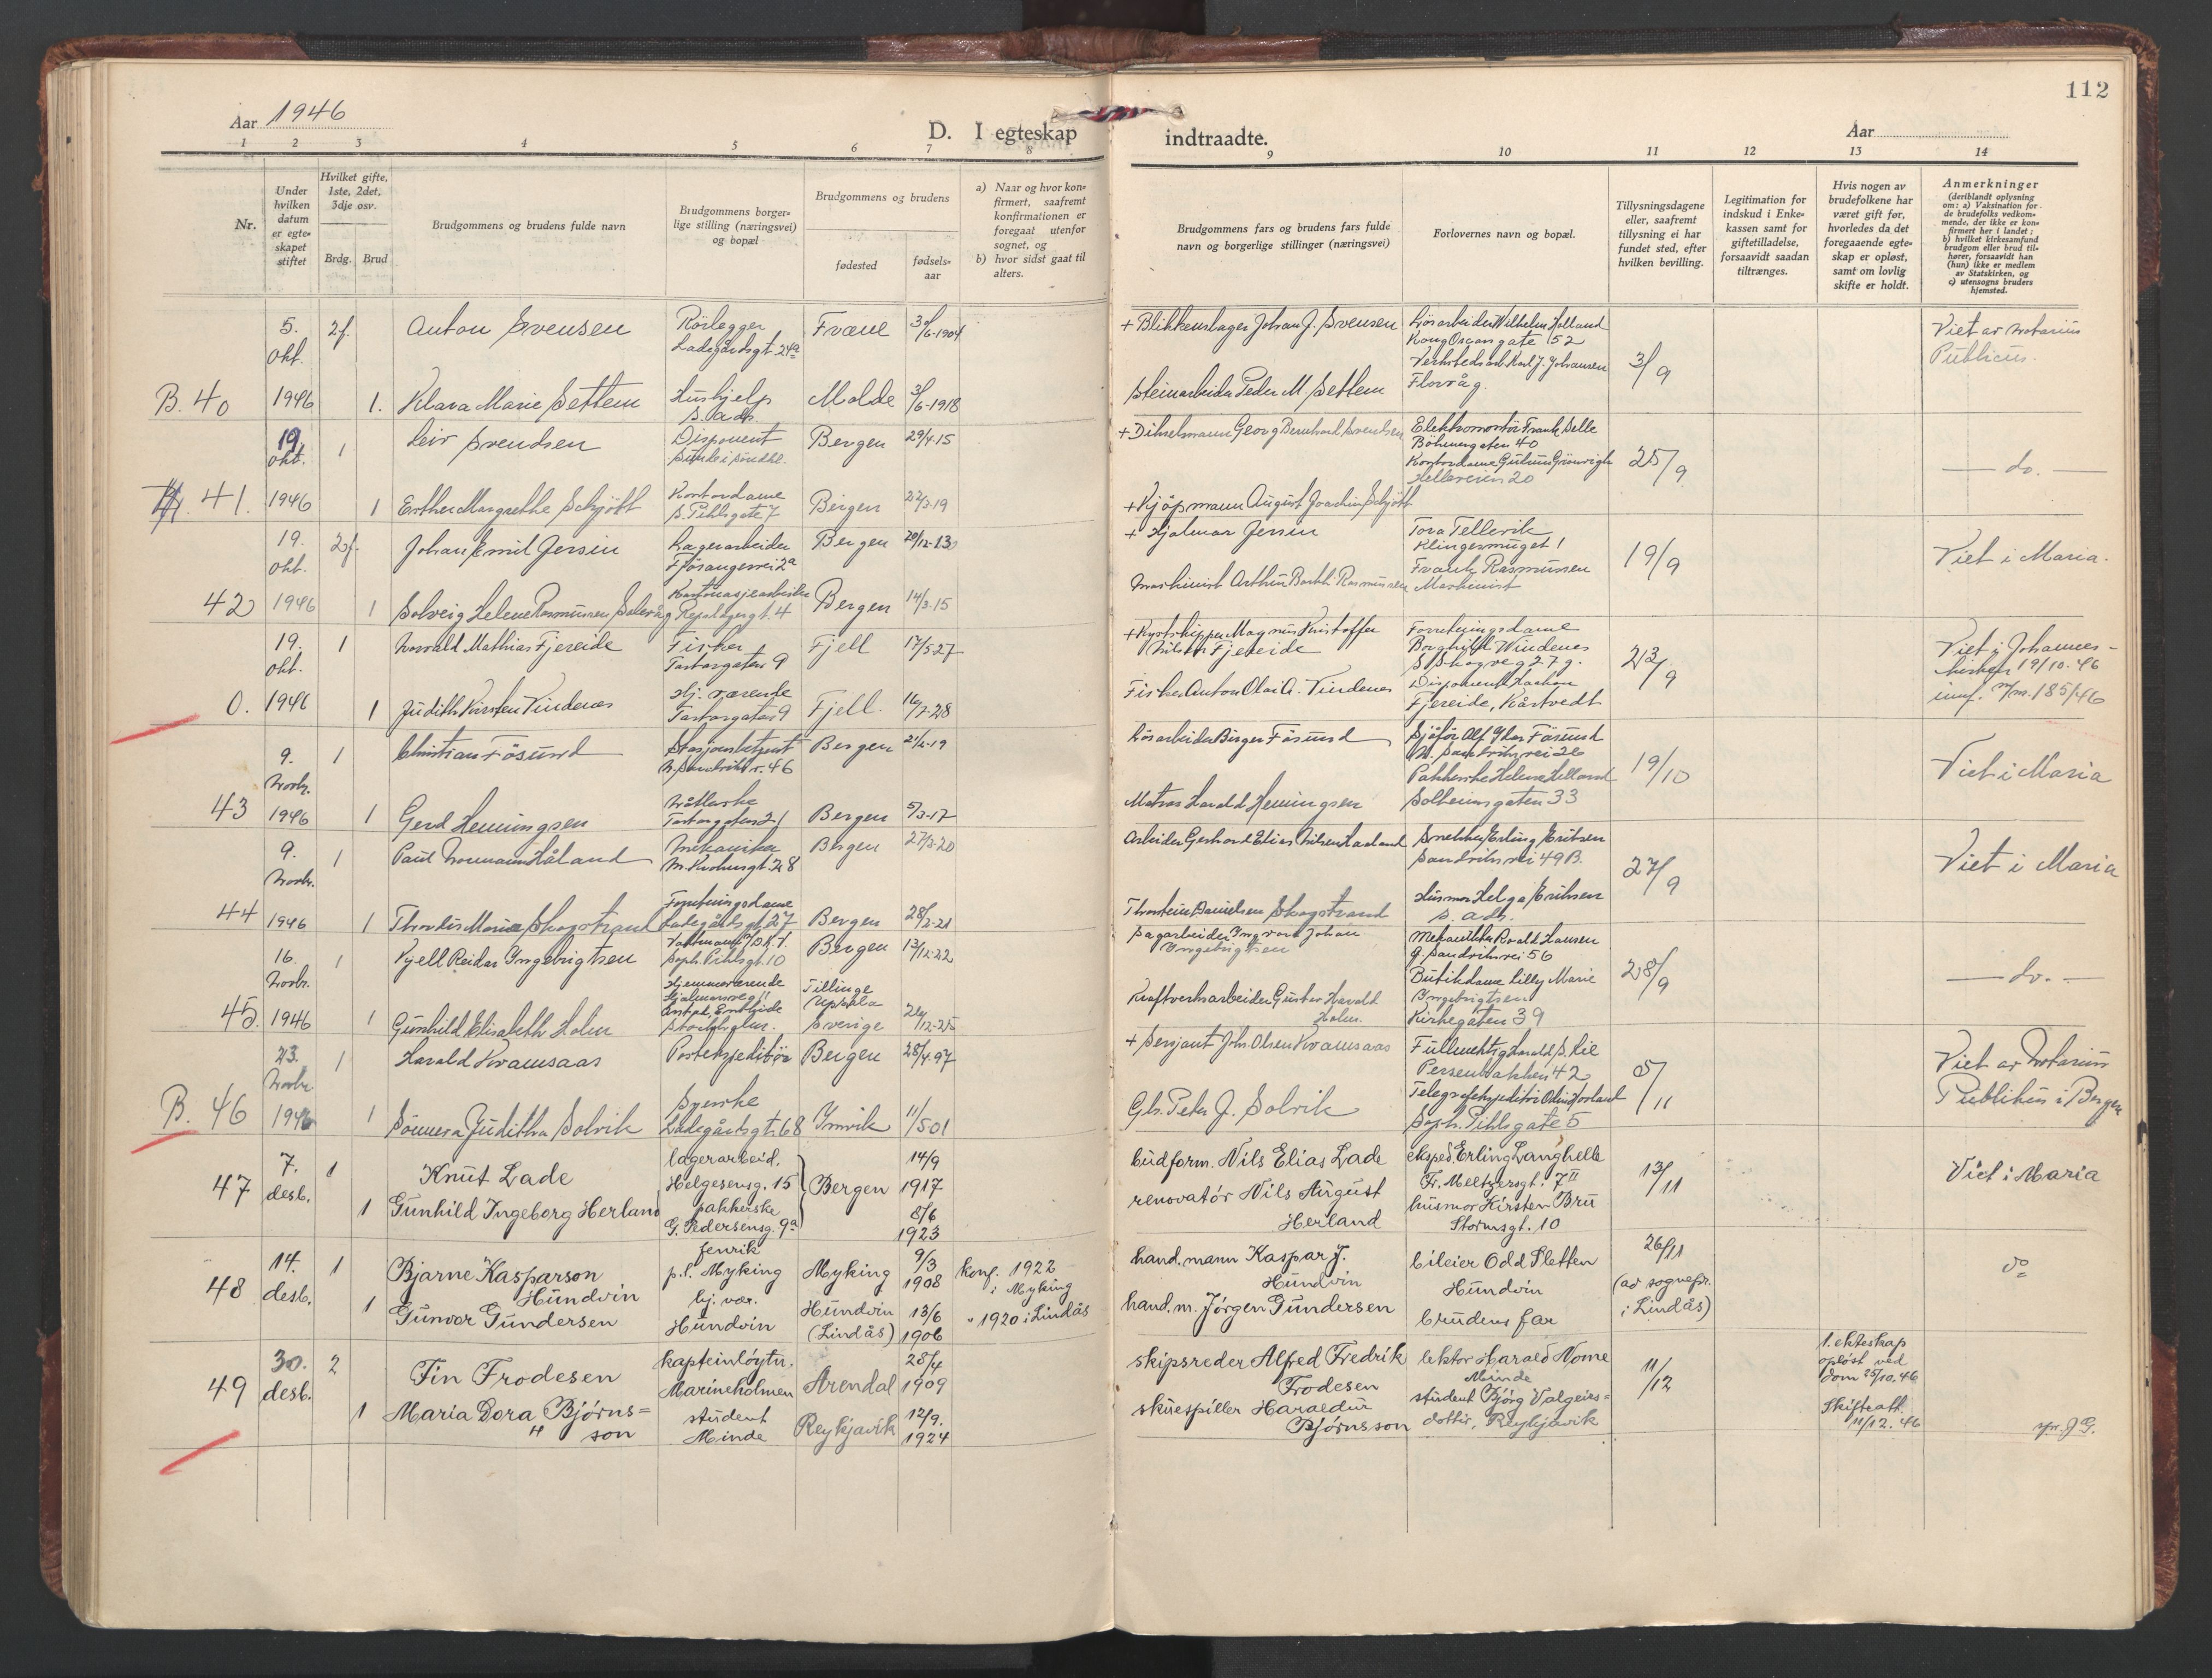 112
Aar 1946
D. I egteskap indtraadte.
Aar
1 2 3 4 5 6 7 8 9 10 11 12 13 14
Nr.
Under hvilken datum er egteskapet stiftet
Hvilket gifte, 1ste, 2det, 3dje osv.
Brdg. Brud
Brudgommens og brudens fulde navn
Brudgommens borgerlige stilling (næringsvei) og bopæl
Brudgommens og brudens
fødested
fødselsaar
a) Naar og hvor konfirmert, saafremt konfirmationen er foregaat utenfor sognet, og
b) hvor sidst gaat til alters.
Brudgommens fars og brudens fars fulde navn og borgerlige stillinger (næringsvei)
Forlovernes navn og bopæl.
Tillysningsdagene eller, saafremt tillysning ei har fundet sted, efter hvilken bevilling.
Legitimation for indskud i Enkekassen samt for giftetilladelse, forsaavidt saadan tiltrænges.
Hvis nogen av brudefolkene har været gift før, hvorledes da det foregaaende egteskap er opløst, samt om lovlig skifte er holdt.
Anmerkninger
(deriblandt oplysning om: a) Vaksination for de brudefolks vedkommende, der ikke er konfirmert her i landet; b) hvilket kirkesamfund brudgom eller brud tilhører, forsaavidt han (hun) ikke er medlem av Statskirken, og c) utensogns bruders hjemsted.
B. 40
5. okt. 1946
2f.
Anton Svensen
Rørlegger
Ladegårdsgt. 24a
Fræne
3/6-1904
+ Blikkenslager Johan J. Svensen
Løsarbeider Wilhelm Holland
Kong Oscarsgate 52
Verkstedsarb. Karl J. Johansen
Florvåg.
3/9
Viet av Notarius
Publicus.
1.
Klara Marie Settem
Hushjelp
s. ads.
Molde
3/6-1918
Steinarbeider Peder M. Settem
41.
19. okt. 1946
1
Leiv Svendsen
Disponent
Bergen
29/4-15
Georg Bernhard Svendsen
Elektromontør Frank Selle
Bøhmergaten 40
25/9
do.
1
Esther Margrethe Schjøtt
Kontordame
S. Pihlsgate 7
Bergen
22/3-19
+ Kjøpmann August Joachim Schjøtt
42
19. okt. 1946
2f.
Johan Emil Jersin
Lagerarbeider
Fjøsangervei 2a
Bergen
20/12-13
+ Hjalmar Jersin
Tora Tellevik
Klingesmuget 1
Frank Rasmussen
Maskinist
19/9
Viet i Maria.
1
Solveig Helene Rasmussen
Bergen
14/3-15
0.
19. okt. 1946
1
Mathias Fjereide
Fisker
Tartargaten 9
Fjell
17/5-27
Fjereide
Forretningsdame
Borghild Vindenes
23/9
Viet i Johannes-
kirken 19/10-46
1
Judith Kirsten Vindenes
Hj. værende
Tartargaten 9
Fjell.
16/7-28
Fisker Anton Olai A. Vindenes
Disponent Haakon
Fjereide, Kårtvedt
43
9. Novbr. 1946
1
Christian Føsund
Bergen
Løsarbeider Birger Føsund
19/10
Viet i Maria
1
Gerd Hemingsen
Bergen
5/3-17
Matros Harald Hemingsen
Pakkerske Helene Helland
Solheimsgaten 33
44
9. Novbr. 1946
1
Paul Normann Håland
Mekaniker
Bergen
27/3-20
Arbeider Gerhard Elias Nilsen Haaland
Snekker Erling Eriksen
Sandviksvei 49 B.
27/9
Viet i Maria
1
Thordis Marie Skogstrand
Forretningsdame
Ladegårdsgt. 27
Bergen
28/2-21
Thorstein Danielsen Skogstrand
Husmor Helga Eriksen
s. ads.
45.
16. Novbr. 1946
1
Kjell Reidar Ingebrigtsen
Soph. Pihlsgt. 10
Bergen
13/12-22
Sagarbeider Ingvart Johan
Ingebrigtsen
Mekaniker Roald Hansen
28/9
do.
1
Gunhild Elisabeth Holm
Hjemmeværende
Stockholm.
Tillinge
Uppsala
Sverige
Kraftverksarbeider Gustav Harald
Holm.
Butikdame Lilly Marie
Ingebrigtsen
Kirkegaten 39
B. 46
23. Novbr. 1946
1
Harald Kvamsaas
Postekspeditør
Bergen
28/4-97
+ Sersjant Johs. Olsen Kvamsaas
Fullmektig Harald S. Lie
Persenbakken 42
5/11
Viet av Notarius
Publikus i Bergen
1
Sunneva Juditha Solvik
Syerske
Ladegårdsgt. 68
Innvik
11/5 01
Gbr. Peter J. Solvik
Soph. Pihlsgate 5
47
7. desb.
1
Knut Lade
lagerarbeid.
Helgesensg. 15
Bergen
14/9 1917
budform. Nils Elias Lade
eksped. Erling Langhelle
Fr. Meltzersgt. 7 II
13/11
Viet i Maria
1
Gunhild Ingeborg Herland
pakkerske
G. Pedersensg. 9a
8/6 1923
renovatør Nils August
Herland
husmor Kirsten Bru
Stormsgt. 10
48
14. desb.
1
Bjarne Kasparson
Hundvin
fenrik
p.t. Myking
Myking
9/3 1908
konf. 1922
i Myking
hand.mann Kaspar J.
Hundvin
bileier Odd Sletten
Hundvin
26/11
(av sognepr.
i Lindås)
do
1
Gunvor Gundersen
hj. vær.
Hundvin
Hundvin
(Lindås)
13/6 1906
" 1920 i Lindås
hand.m. Jørgen Gundersen
brudens far
49
30. desb.
2
Fin Frodesen
kapteinløytn.
Marineholmen
Arendal
28/4 1909
skipsreder Alfred Fredrik
Frodesen
lektor Harald Nome
Minde
11/12
1. ekteskap
opløst ved
dom 25/10.46
Skifteatt.
11/12.46
1
Maria Dora Bjørns=
son
student
Minde
Reykjavik
12/9. 1924
skuespiller Haraldur
Bjørnsson
student Bjørg Valgeirs=
dottir, Reykjavik